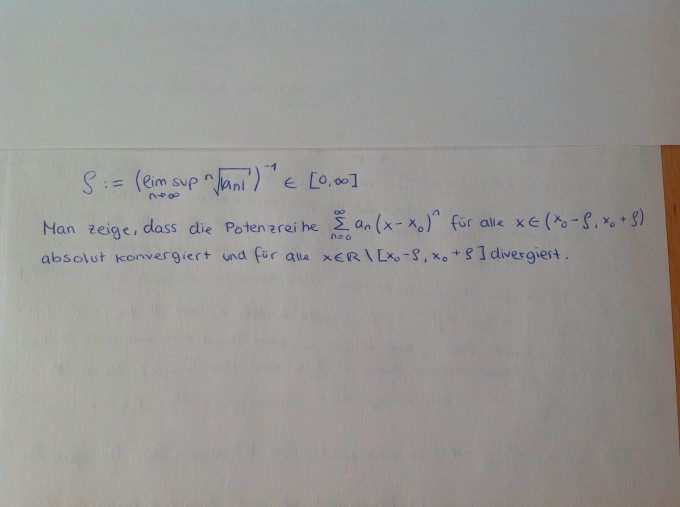 ρ := (lim sup n→∞ ⁿ√|aₙ|)⁻¹ ∈ [0,∞]
Man zeige, dass die Potenzreihe ∑_{n=0}^{∞} aₙ(x-x₀)ⁿ für alle x∈(x₀-ρ, x₀+ρ)
absolut konvergiert und für alle x∈ℝ\[x₀-ρ, x₀+ρ] divergiert.